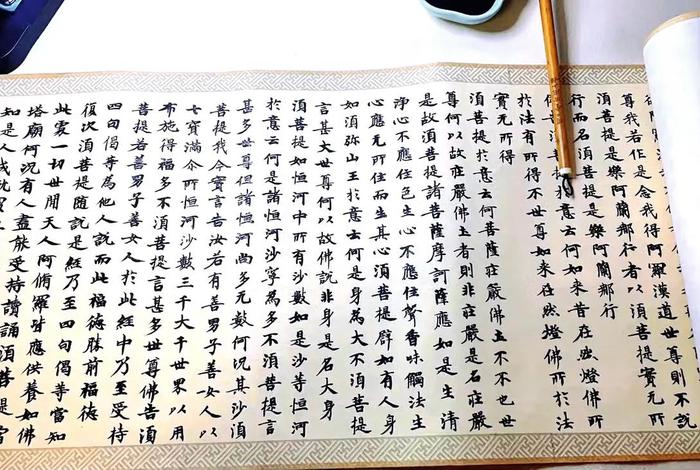 尊我若作是念我得阿羅漢道世尊則不說
須菩提是樂阿蘭那行者以須菩提實无所
行而名須菩提是樂阿蘭那行
須菩提於意云何如来昔在然燈佛所
於法有所得不世尊如来在然燈佛所於法
實无所得
須菩提於意云何菩薩莊嚴佛土不不也世
尊何以故莊嚴佛土者則非莊嚴是名莊嚴
是故須菩提諸菩薩摩訶薩應如是生清
淨心不應住色生心不應住聲香味觸法生
心應无所住而生其心須菩提辟如有人身
如須弥山王於意云何是身為大不須菩提
言甚大世尊何以故佛說非身是名大身
須菩提如恒河中所有沙數如是沙等恒河
於意云何是諸恒河沙寧為多不須菩提言
甚多世尊但諸恒河尚多无數何況其沙須
菩提我今實言告汝若有善男子善女人以
七寶滿尒所恒河沙數三千大千世界以用
布施得福多不須菩提言甚多世尊佛告須
菩提若善男子善女人於此經中乃至受持
四句偈等為他人說而此福德勝前福德
復次須菩提随說是經乃至四句偈等當知
此處一切世間天人阿脩羅皆應供養如佛
塔廟何況有人盡能受持讀誦須菩提當
知是人成就